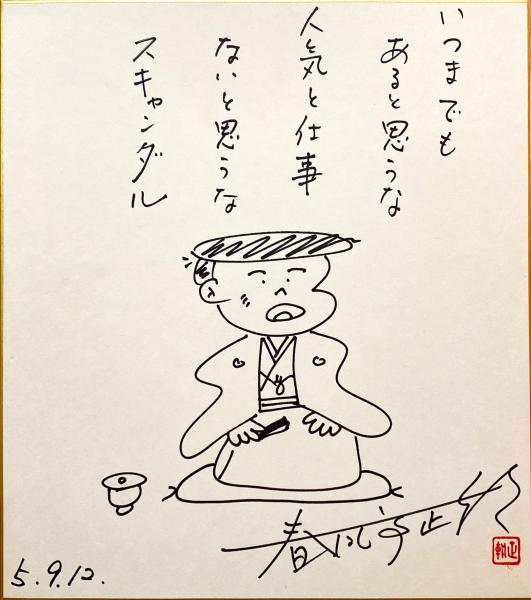 いつまでも
あると思うな
人気と仕事
ないと思うな
スキャンダル
春風亭正朝
5.9.12.
正朝